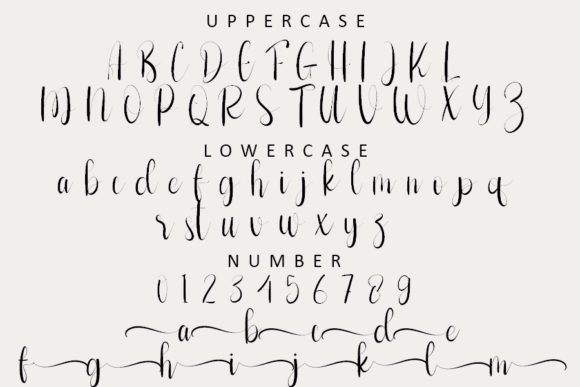 UPPERCASE
A B C D E F G H I J K L
M N O P Q R S T U V W X Y Z
LOWERCASE
a b c d e f g h i j k l m n o p q
r s t u v w x y z
NUMBER
0 1 2 3 4 5 6 7 8 9
a b c d e
f g h i j k l m